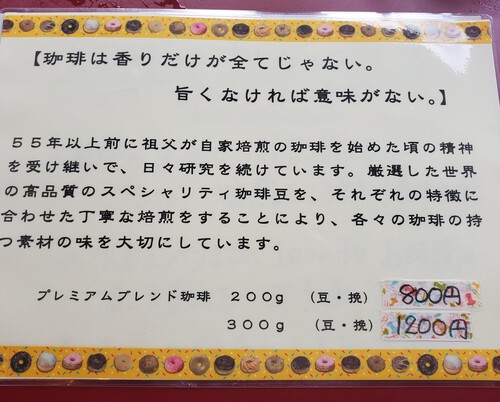 【珈琲は香りだけが全てじゃない。
旨くなければ意味がない。】
５５年以上前に祖父が自家焙煎の珈琲を始めた頃の精神
を受け継いで、日々研究を続けています。厳選した世界
の高品質のスペシャリティ珈琲豆を、それぞれの特徴に
合わせた丁寧な焙煎をすることにより、各々の珈琲の持
つ素材の味を大切にしています。
プレミアムブレンド珈琲　２００ｇ　（豆・挽）　800円
３００ｇ　（豆・挽）　1200円